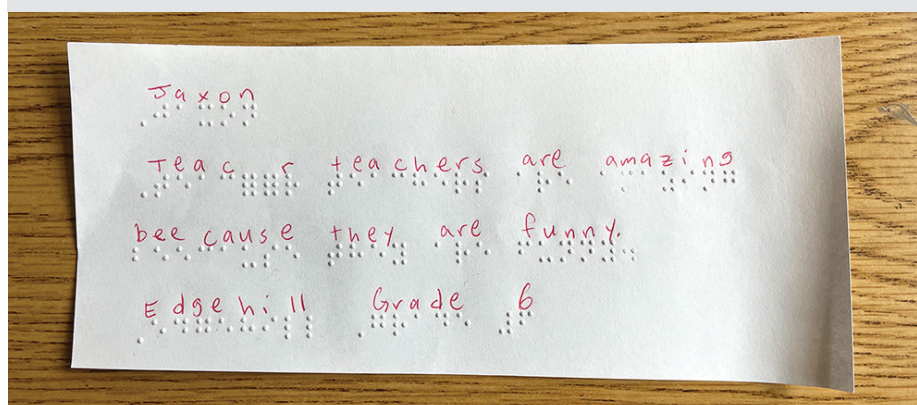 Jaxon
Teac r teachers are amazing
bee cause they are funny.
Edgehill Grade 6